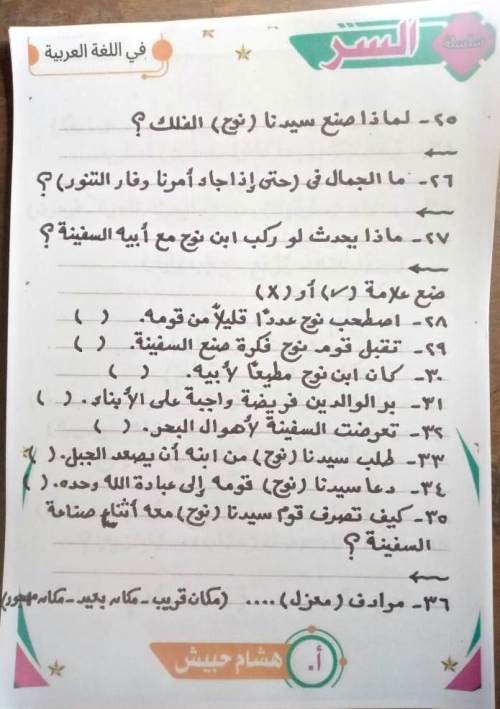 سلسلة
السر
في اللغة العربية
٢٥- لماذا صنع سيدنا (نوح) الفلك ؟
٢٦- ما الجمال فى (حتى إذا جاء أمرنا وفار التنور) ؟
٢٧- ماذا يحدث لو ركب ابن نوح مع أبيه السفينة ؟
ضع علامة (√) أو (X)
٢٨- اصطحب نوح عددًا قليلاً من قومه. ( )
٢٩- تقبل قوم نوح فكرة صنع السفينة. ( )
٣٠- كان ابن نوح مطيعًا لأبيه. ( )
٣١- بر الوالدين فريضة واجبة على الأبناء. ( )
٣٢- تعرضت السفينة لأهوال البحر. ( )
٣٣- طلب سيدنا (نوح) من ابنه أن يصعد الجبل. ( )
٣٤- دعا سيدنا (نوح) قومه إلى عبادة الله وحده. ( )
٣٥- كيف تصرف قوم سيدنا (نوح) معه أثناء صناعة
السفينة ؟
٣٦- مرادف (معزل) .... (مكان قريب - مكان بعيد - مكان مهجور)
أ. هشام حبيش